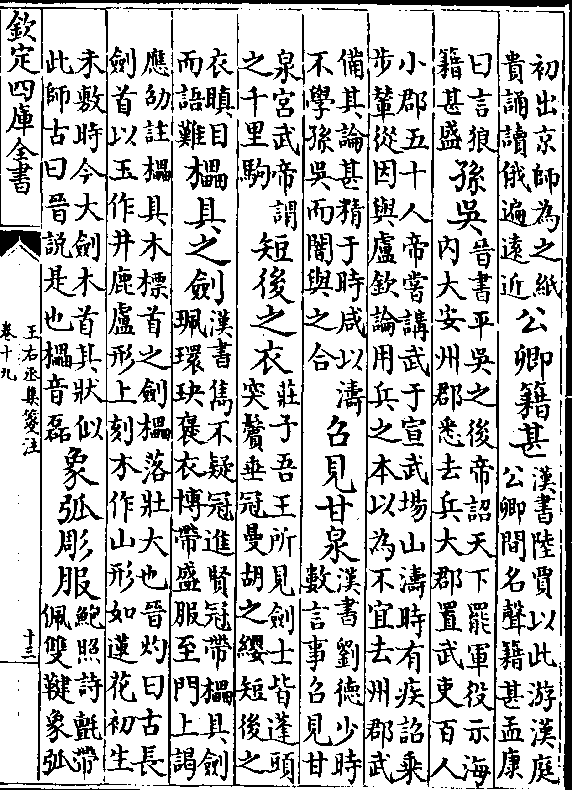 初出京師為之紙貴誦讀俄遍遠近公卿籍甚漢書陸賈以此游漢庭公卿間名聲籍甚孟康
曰言狼籍甚盛孫吳晉書平吳之後帝詔天下罷軍役示海內大安州郡悉去兵大郡置武吏百人
小郡五十人帝嘗講武于宣武場山濤時有疾詔乘步輦從因與盧欽論用兵之本以為不宜去州郡武
備其論甚精于時咸以濤不學孫吳而闇與之合召見甘泉漢書劉德少時數言事召見甘
泉宮武帝謂之千里駒短後之衣莊子吾王所見劍士皆蓬頭突鬢垂冠曼胡之纓短後之
衣瞋目而語難櫑具之劍漢書雋不疑冠進賢冠帶櫑具劍珮環玦褒衣博帶盛服至門上謁
應劭註櫑具木標首之劍櫑落壯大也晉灼曰古長劍首以玉作井鹿盧形上刻木作山形如蓮花初生
未敷時今大劍木首其狀似此師古曰晉說是也櫑音磊象弧彫服鮑照詩氈帶佩雙鞬象弧
欽定四庫全書
王右丞集箋注
卷十九
十三